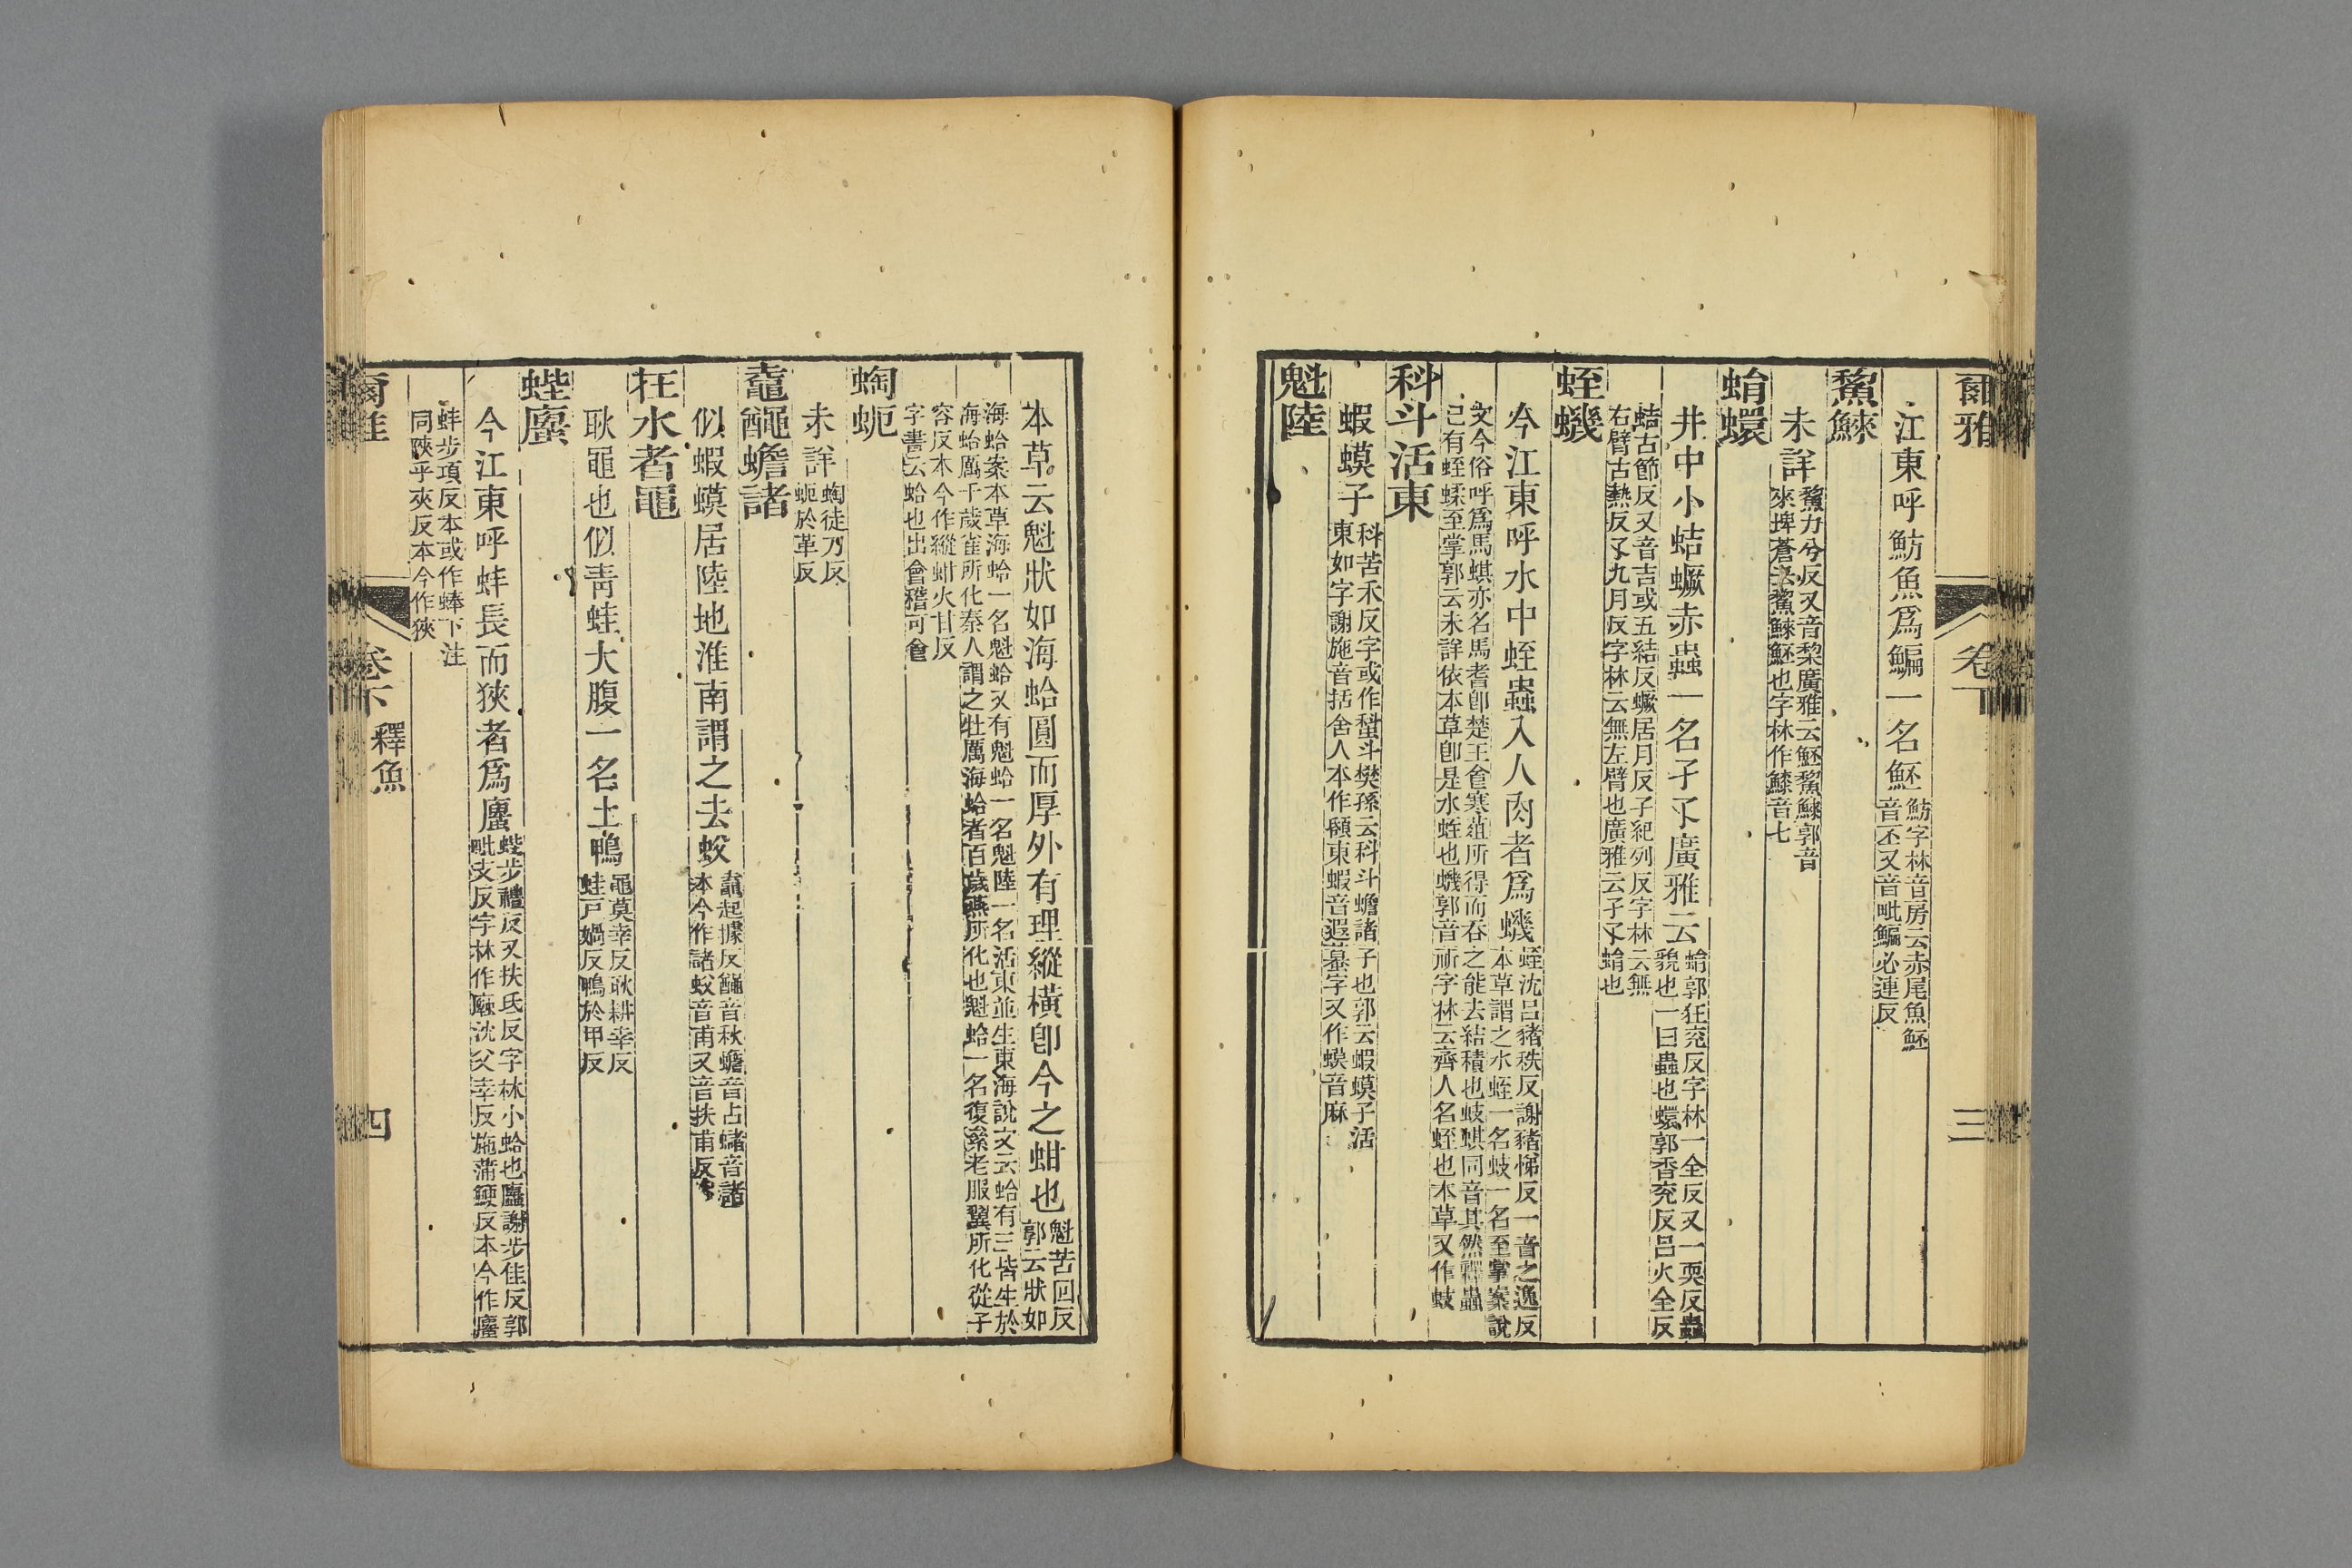 爾雅
卷下
三
江東呼魴魚爲鯿一名魾
魴字林音房云赤尾魚魾
音丕又音毗鯿必連反
鯬鯠
未詳
鯬力兮反又音棃廣雅云魾鯬鯠郭音
來埤蒼云鯬鯠魾也字林作鯠音七
蜎蠉
井中小蛣蟩赤蟲一名孑孓廣雅云
蜎郭狂兖反字林一全反又一耎反蟲
貌也一曰蟲也蠉郭香兖反呂火全反
蛣古節反又音吉或五結反蟩居月反孑紀列反字林云無
右臂古熱反孓九月反字林云無左臂也廣雅云孑孓蜎也
蛭蟣
今江東呼水中蛭蟲入人肉者爲蟣
蛭沈呂豬秩反謝豬悌反一音之逸反
本草謂之水蛭一名蚑一名至掌案說
文今俗呼爲馬蜞亦名馬耆卽楚王食寒菹所得而吞之能去結積也蚑蜞同音其然釋蟲
已有蛭蝚至掌郭云未詳依本草卽是水蛭也蟣郭音祈字林云齊人名蛭也本草又作蚑
科斗活東
蝦蟆子
科苦禾反字或作蝌斗樊孫云科斗蟾諸子也郭云蝦蟆子活
東如字謝施音括舍人本作顝東蝦音遐蟇字又作蟆音麻
魁陸
本草云魁狀如海蛤圓而厚外有理縱橫卽今之蚶也
魁苦回反
郭云狀如
海蛤案本草海蛤一名魁蛤又有魁蛤一名魁陸一名活東並生東海說文云蛤有三皆生於
海蛤厲千歲雀所化秦人謂之牡厲海蛤者百歲燕所化也魁蛤一名復絫老服翼所化從子
容反本今作縱蚶火甘反
字書云蛤也出會稽可食
蜪蚅
未詳
蜪徒刀反
蚅於革反
鼁䵷蟾諸
似蝦蟆居陸地淮南謂之去蚁
鼁起據反䵷音秋蟾音占蠩音諸
本今作諸蚁音甫又音扶甫反
在水者黽
耿黽也似青蛙大腹一名土鴨
黽莫幸反耿耕幸反
蛙戸媧反鴨於甲反
蜌螷
今江東呼蚌長而狹者爲螷
蜌步禮反又扶氏反字林小蛤也螷謝步佳反郭
毗支反字林作䗯沈父幸反施蒲鯁反本今作螷
蚌步項反本或作蜯下注
同陜乎夾反本今作狹
爾雅
卷下
釋魚
四